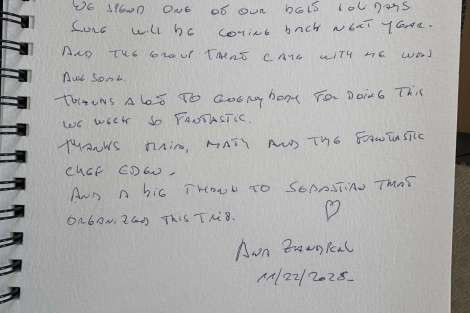 WE SPEND ONE OF OUR BEST HOLIDAYS
SURE WILL BE COMING BACK NEXT YEAR.
AND THE GROUP THAT CAME WITH ME WAS
AWESOME.
THANKS A LOT TO EVERYBODY FOR DOING THIS
WE WEEK SO FANTASTIC.
THANKS MAID, MATY AND THE FANTASTIC
CHEF EDEN.
AND A BIG THANK TO SEBASTIAN THAT
ORGANIZED THIS TRIB.
ANA
11/22/2025-